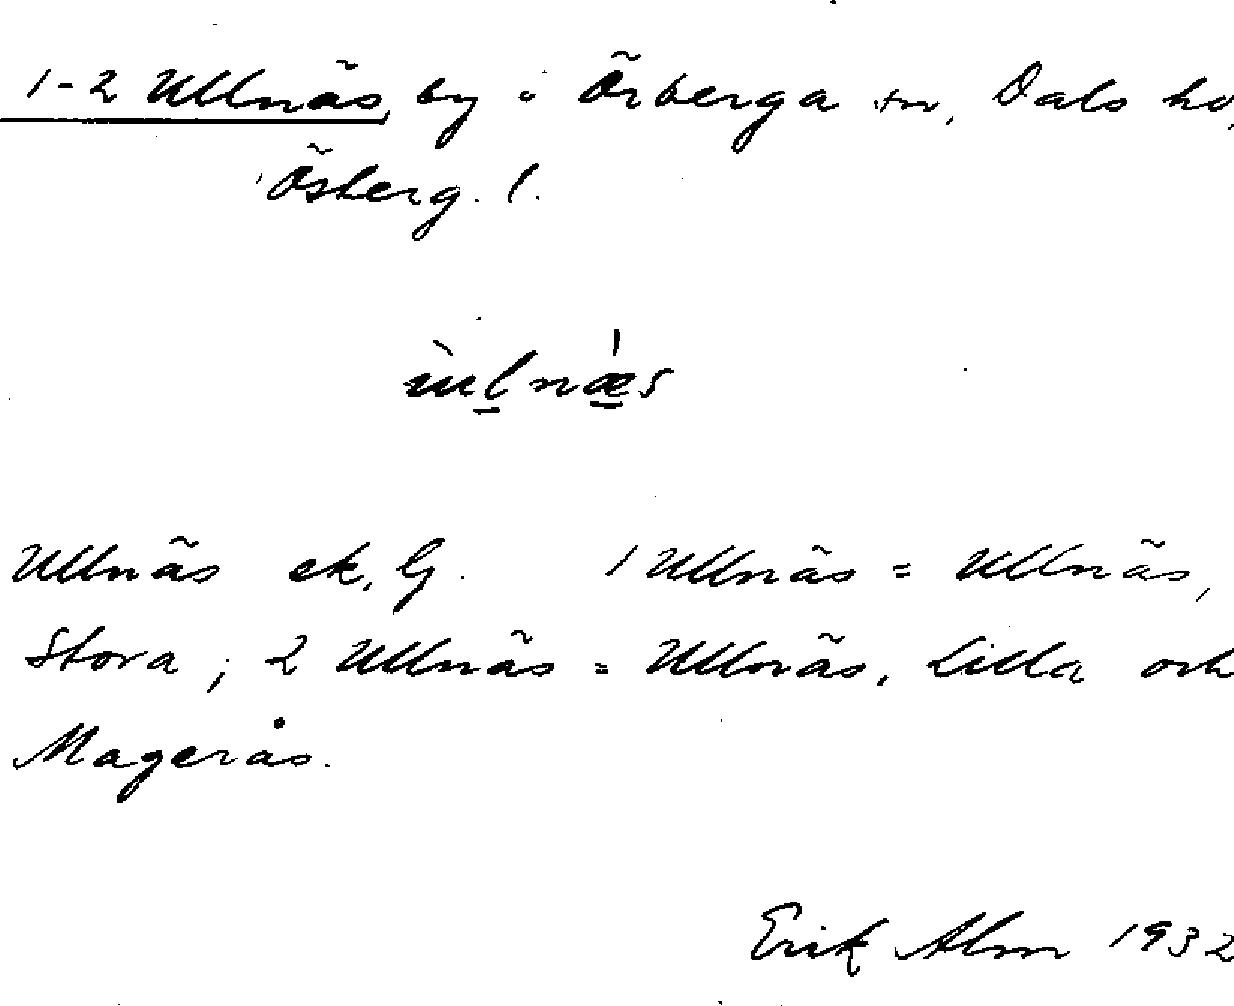 1-2 Ullnäs, by i Örberga sn, Dals hd,
Österg. l.
ùlnǽs
Ullnäs ek, G. 1 Ullnäs = Ullnäs,
Stora; 2 Ullnäs = Ullnäs, Lilla och
Magerås.
Erik Alm 1932